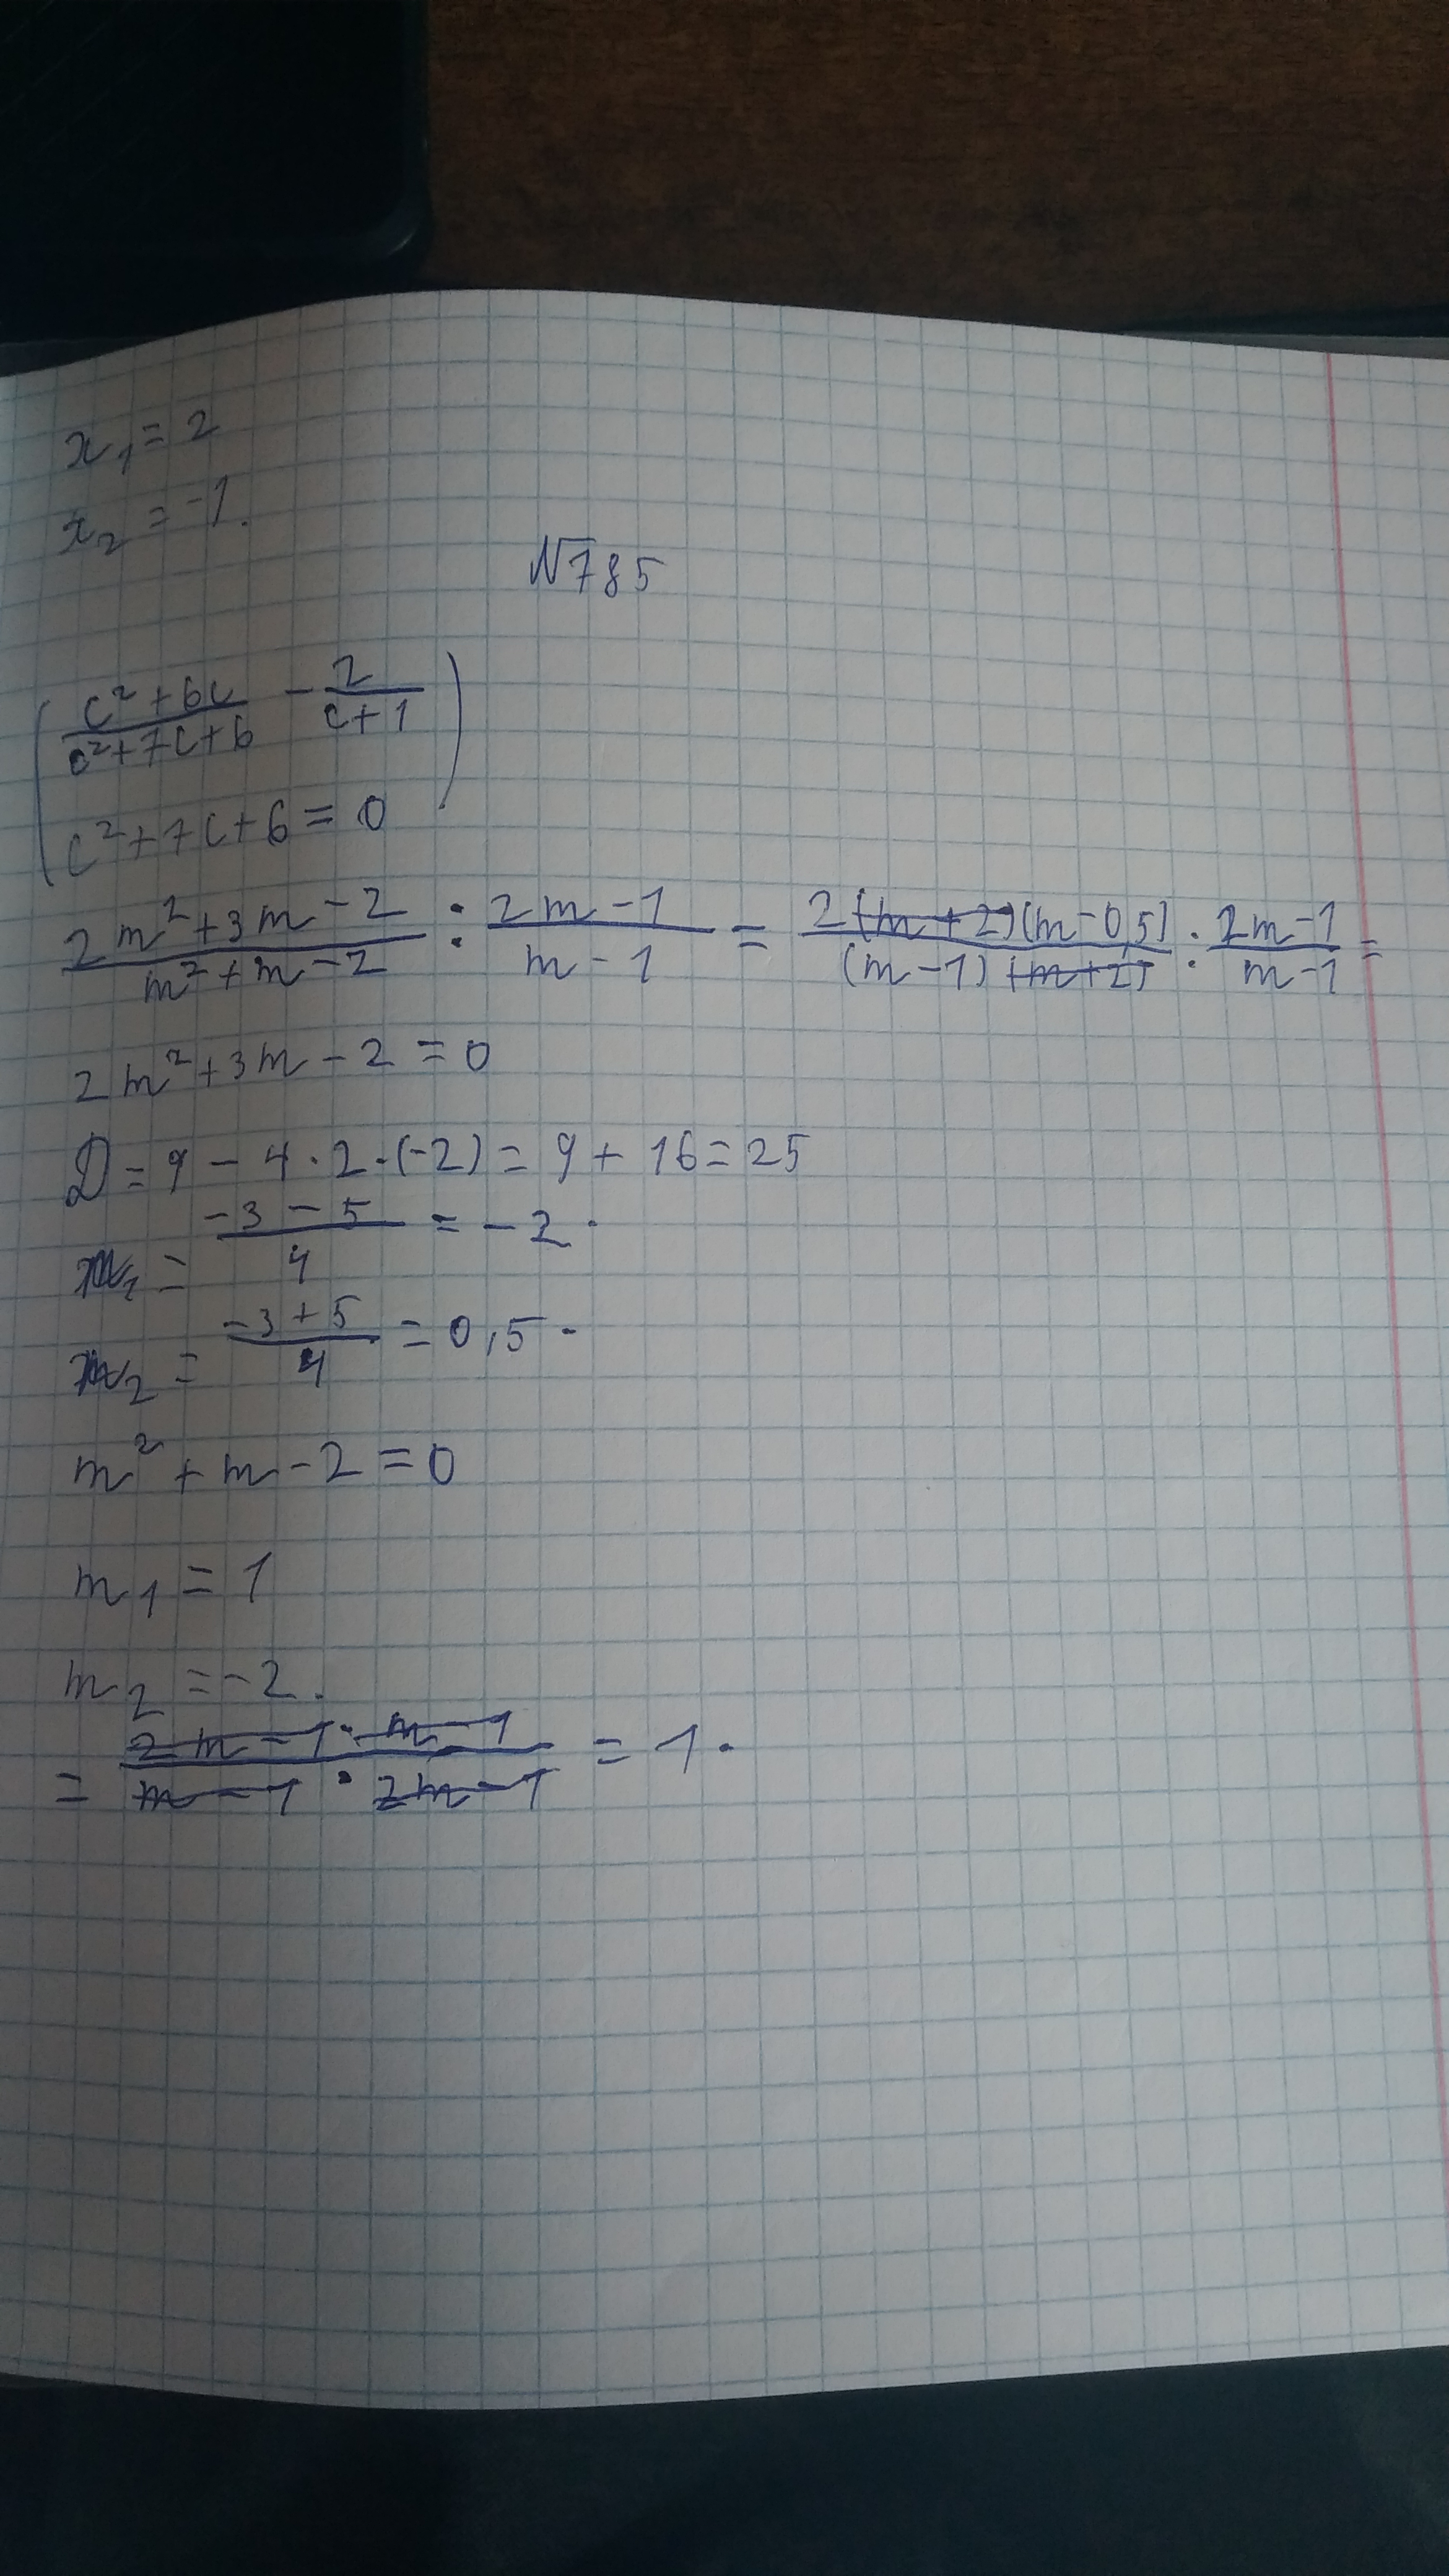 x₁ = 2
x₂ = -1.
№785
( (c² + 6c)/(c² + 7c + 6) - 2/(c + 1)
c² + 7c + 6 = 0 )
(2m² + 3m - 2)/(m² + m - 2) : (2m - 1)/(m - 1) = 2(m + 2)(m - 0,5)/(m - 1)(m + 2) : (2m - 1)/(m - 1) =
2m² + 3m - 2 = 0
D = 9 - 4 · 2 · (-2) = 9 + 16 = 25
m₁ = (-3 - 5)/4 = -2.
m₂ = (-3 + 5)/4 = 0,5.
m² + m - 2 = 0
m₁ = 1
m₂ = -2.
= (2m - 1 · m - 1)/(m - 1 · 2m - 1) = 1.